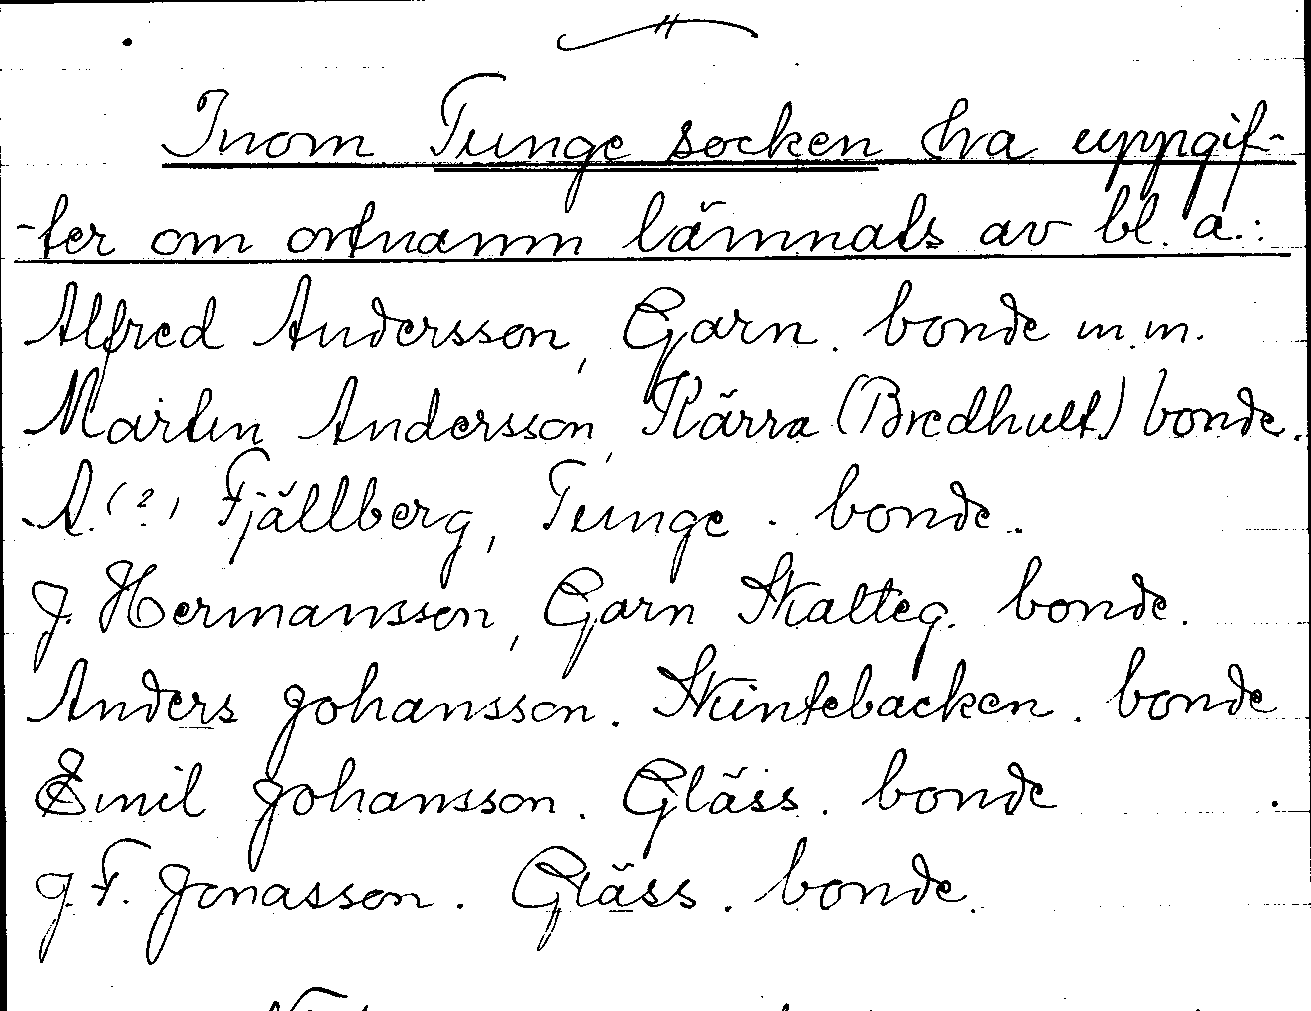 Inom Tunge socken ha uppgif-
-ter om ortnamn lämnats av bl. a.:
Alfred Andersson, Garn. bonde m.m.
Martin Andersson, Kärra (Bredhult) bonde.
A. (?) Fjällberg, Tunge. bonde.
J. Hermansson, Garn Skatteg. bonde.
Anders Johansson. Skintebacken. bonde
Emil Johansson. Gläss. bonde
J. F. Jonasson. Gläss. bonde.